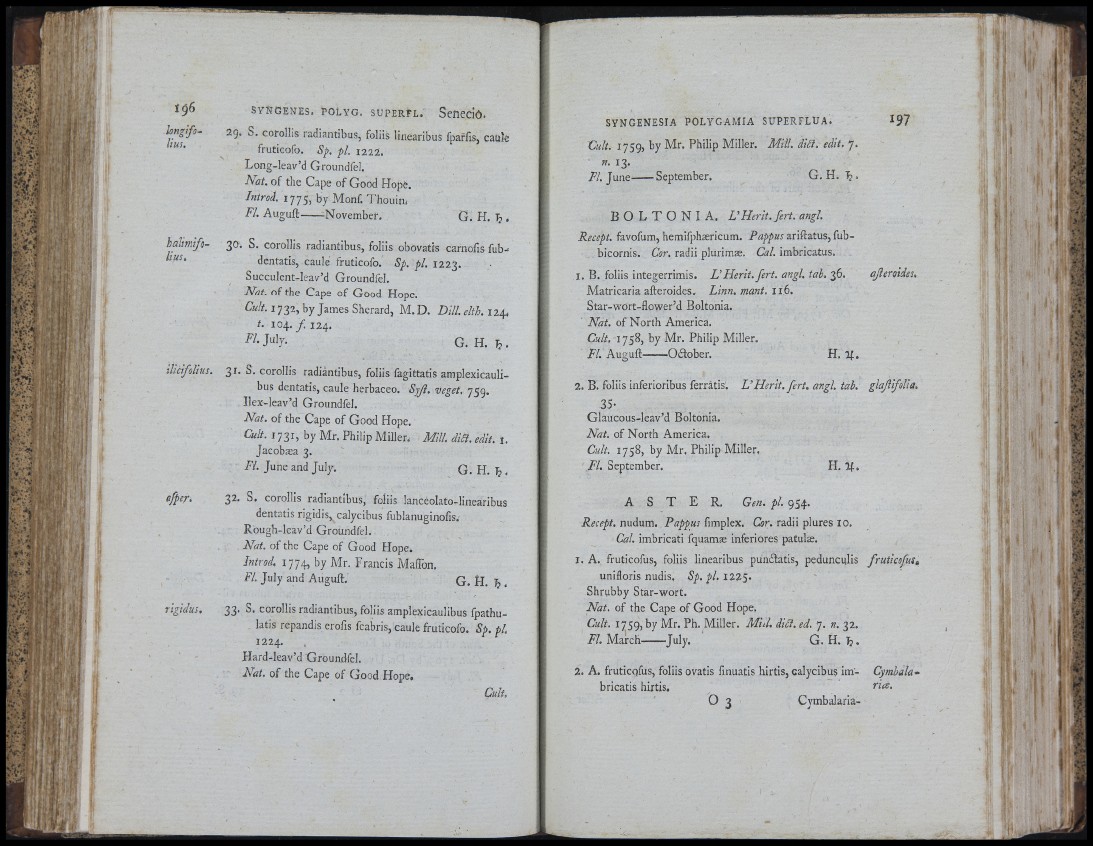 196 SYNGENES. POLYG. SUPERFL. Senecio.
longifo-
lius.
29. S. corollis radiantibus, foliis linearibus ſparſis, caule
fruticoſo. Sp. pl. 1222.
Long-leav'd Groundſel.
Nat. of the Cape of Good Hope.
Introd. 1775, by Monſ. Thouin.
Fl. Auguſt——November. G. H. ♄.
halimifo-
lius.
30. S. corollis radiantibus, foliis obovatis carnoſis ſub-
dentatis, caule fruticoſo. Sp. pl. 1223.
Succulent-leav'd Groundſel.
Nat. of the Cape of Good Hope.
Cult. 1732, by James Sherard, M.D. Dill. elth. 124.
t. 104. f. 124.
Fl. July. G. H. ♄.
ilicifolius. 31. S. corollis radiantibus, foliis ſagittatis amplexicauli-
bus dentatis, caule herbaceo. Syſt. veget. 759.
Ilex-leav'd Groundſel.
Nat. of the Cape of Good Hope.
Cult. 1731, by Mr. Philip Miller. Mill. dict. edit. 1.
Jacobæa 3.
Fl. June and July. G. H. ♄.
aſper. 32. S. corollis radiantibus, foliis lanceolato-linearibus
dentatis rigidis, calycibus ſublanuginoſis.
Rough-leav'd Groundſel.
Nat. of the Cape of Good Hope.
Introd. 1774, by Mr. Francis Maſſon.
Fl. July and Auguſt. G. H. ♄.
rigidus. 33. S. corollis radiantibus, foliis amplexicaulibus ſpathu-
latis repandis eroſis ſcabris, caule fruticoſo. Sp. pl.
1224.
Hard-leav'd Groundſel.
Nat. of the Cape of Good Hope.
Cult.
SYNGENESIA POLYGAMIA SUPERFLUA. 197
Cult. 1759, by Mr. Philip Miller. Mill. dict. edit. 7.
n. 13.
Fl. June——September. G. H. ♄.
BOLTONIA. L'Herit. ſert. angl.
Recept. favoſum, hemiſphæricum. Pappus ariſtatus, ſub-
bicornis. Cor. radii plurimæ. Cal. imbricatus.
1. B. foliis integerrimis. L'Herit. ſert. angl. tab. 36. aſteroides.
Matricaria aſteroides. Linn. mant. 116.
Star-wort-flower'd Boltonia.
Nat. of North America.
Cult. 1758, by Mr. Philip Miller.
Fl. Auguſt——October. H. ♃.
2. B. foliis inferioribus ſerratis. L'Herit. ſert. angl. tab. glaſtifolia.
35.
Glaucous-leav'd Boltonia.
Nat. of North America.
Cult. 1758, by Mr. Philip Miller.
Fl. September. H. ♃.
ASTER. Gen. pl. 954.
Recept. nudum. Pappus ſimplex. Cor. radii plures 10.
Cal. imbricati ſquamæ inferiores patulæ.
1. A. fruticoſus, foliis linearibus punctatis, pedunculis fruticoſus.
unifloris nudis. Sp. pl. 1225.
Shrubby Star-wort.
Nat. of the Cape of Good Hope.
Cult. 1759, by Mr. Ph. Miller. Mill. dict. ed. 7. n. 32.
Fl. March——July. G. H. ♄.
2. A. fruticoſus, foliis ovatis ſinuatis hirtis, calycibus im- Cymbala-
bricatis hirtis. riæ.
O 3 Cymbalaria-